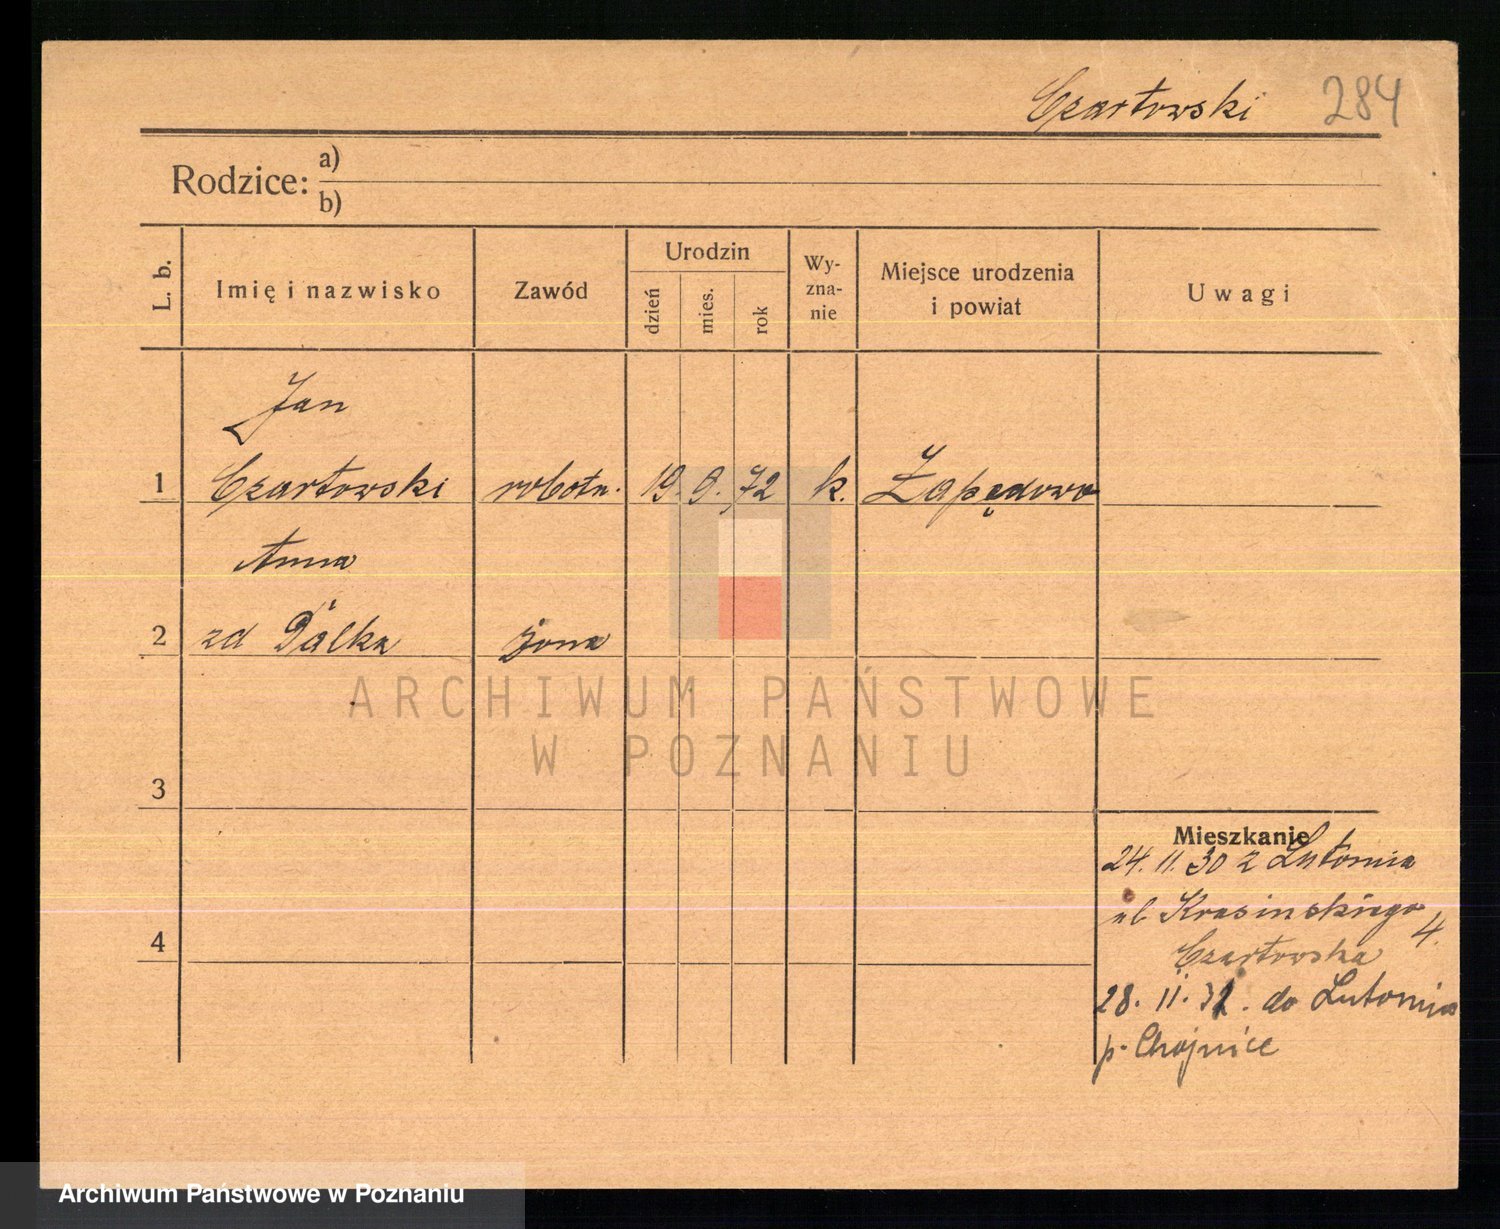 Czartowski 284
Rodzice: a)
b)
L. b. Imię i nazwisko Zawód Urodzin dzień mies. rok Wy-zna-nie Miejsce urodzenia i powiat Uwagi
Jan
1 Czartowski robotn. 19. 9. 72 k. Łapędowo
Anna
2 zd Pálka żona
3
Mieszkanie
24. 11. 30 z Lutomia
ul Krasinskiego 4.
4
Czartowska
28. 11. do Lutomia
p. Chojnice
ARCHIWUM PAŃSTWOWE
W POZNANIU
Archiwum Państwowe w Poznaniu